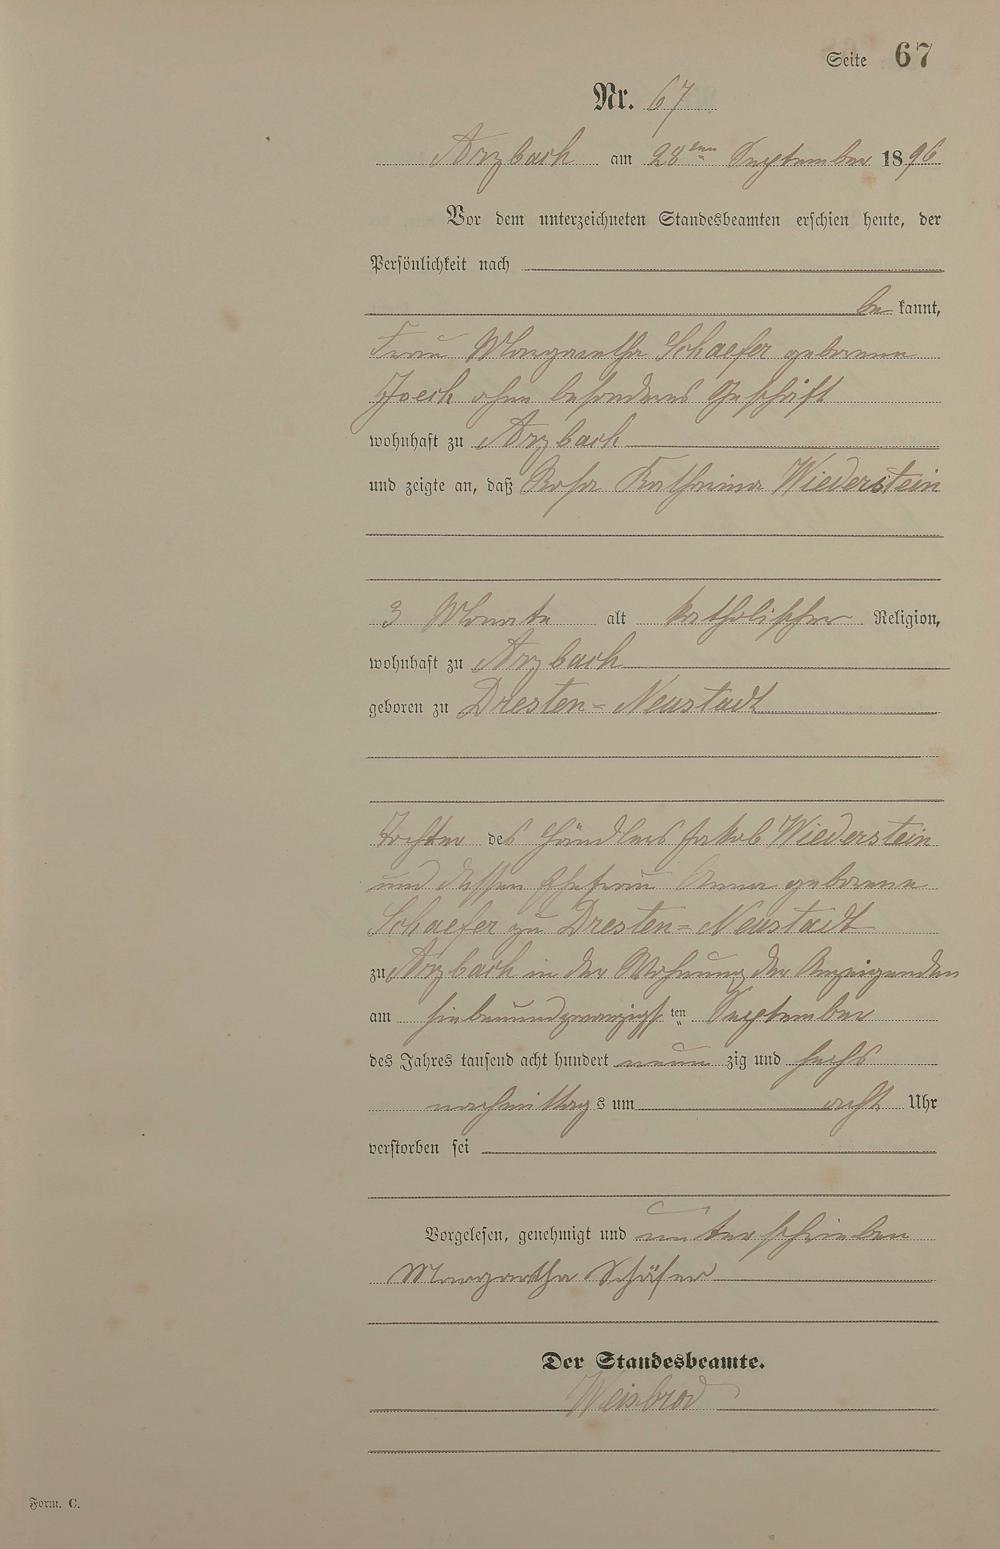 Seite 67
Nr. 67
Arzbach am 28ten September 1896
Vor dem unterzeichneten Standesbeamten erschien heute, der
Persönlichkeit nach
be kannt,
Frau Margaretha Schaefer geborene
Joech ohne besonderes Geschäft
wohnhaft zu Arzbach
und zeigte an, daß Rosa Katharina Wiederstein
3 Monate alt katholischer Religion,
wohnhaft zu Arzbach
geboren zu Dresten-Neustadt
Tochter des Händlers Jakob Wiederstein
und dessen Ehefrau Anna geborene
Schaefer zu Dresten-Neustadt
zu Arzbach in der Wohnung der Anzeigenden
am siebenundzwanzigsten September
des Jahres tausend acht hundert neun zig und sechs
nachmittags um acht Uhr
verstorben sei
Vorgelesen, genehmigt und unterschrieben
Margartha Schäfer
Der Standesbeamte.
Weisbrod
Form. C.